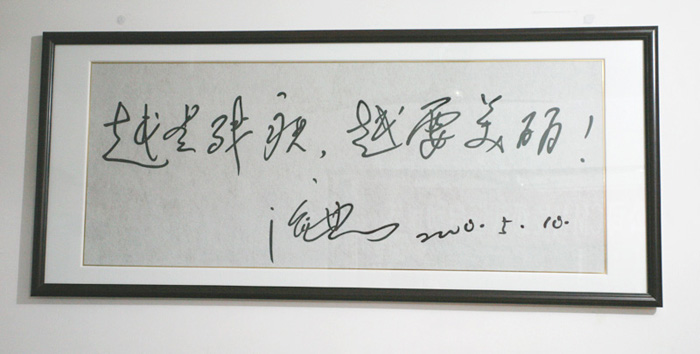 越是残疾，越要美丽！
2010.5.10.